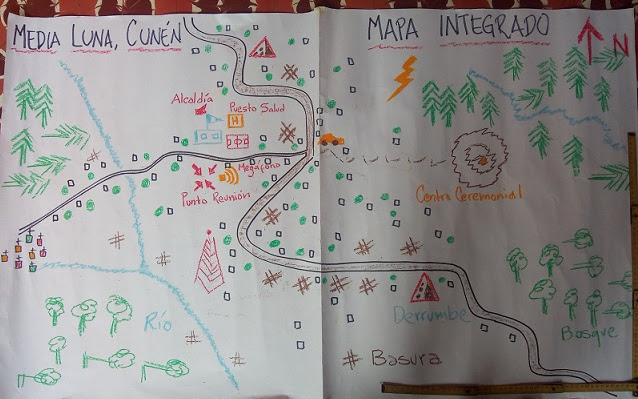 MEDIA LUNA, CUNÉN
MAPA INTEGRADO
N
Alcaldía
Puesto Salud
H
Megáfono
Punto Reunión
Centro Ceremonial
Río
Derrumbe
Bosque
Basura